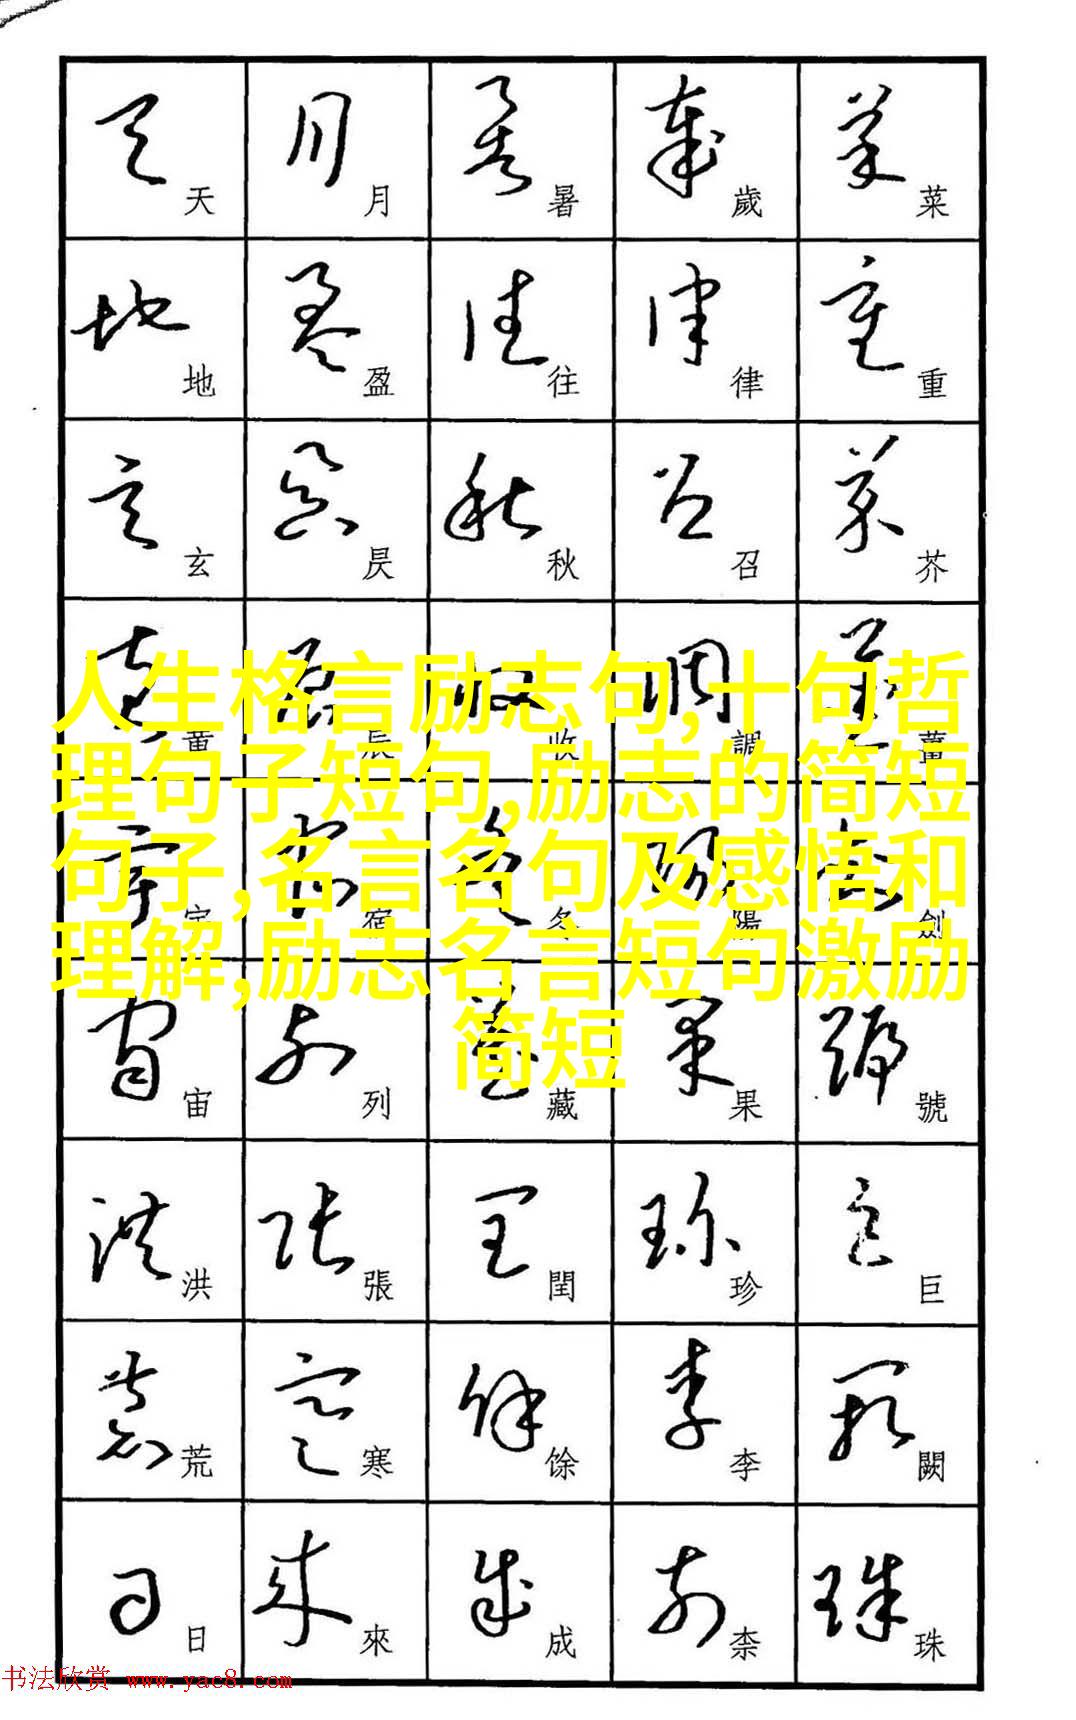 天 月 暑 歲 菜
地 盈 往 律 重
玄 昃 秋 召 芥
黄 辰 收 調 薑
人生格言励志句,十句哲
理句子短句,励志的简短
宇 宿 冬 陽 劍
句子,名言名句及感悟和
理解,励志名言短句激励
简短
宙 列 藏 果 號
洪 張 閏 珍 巨
荒 寒 馀 李 闕
日 來 成 柰 珠
书法欣赏 www.yac8.com